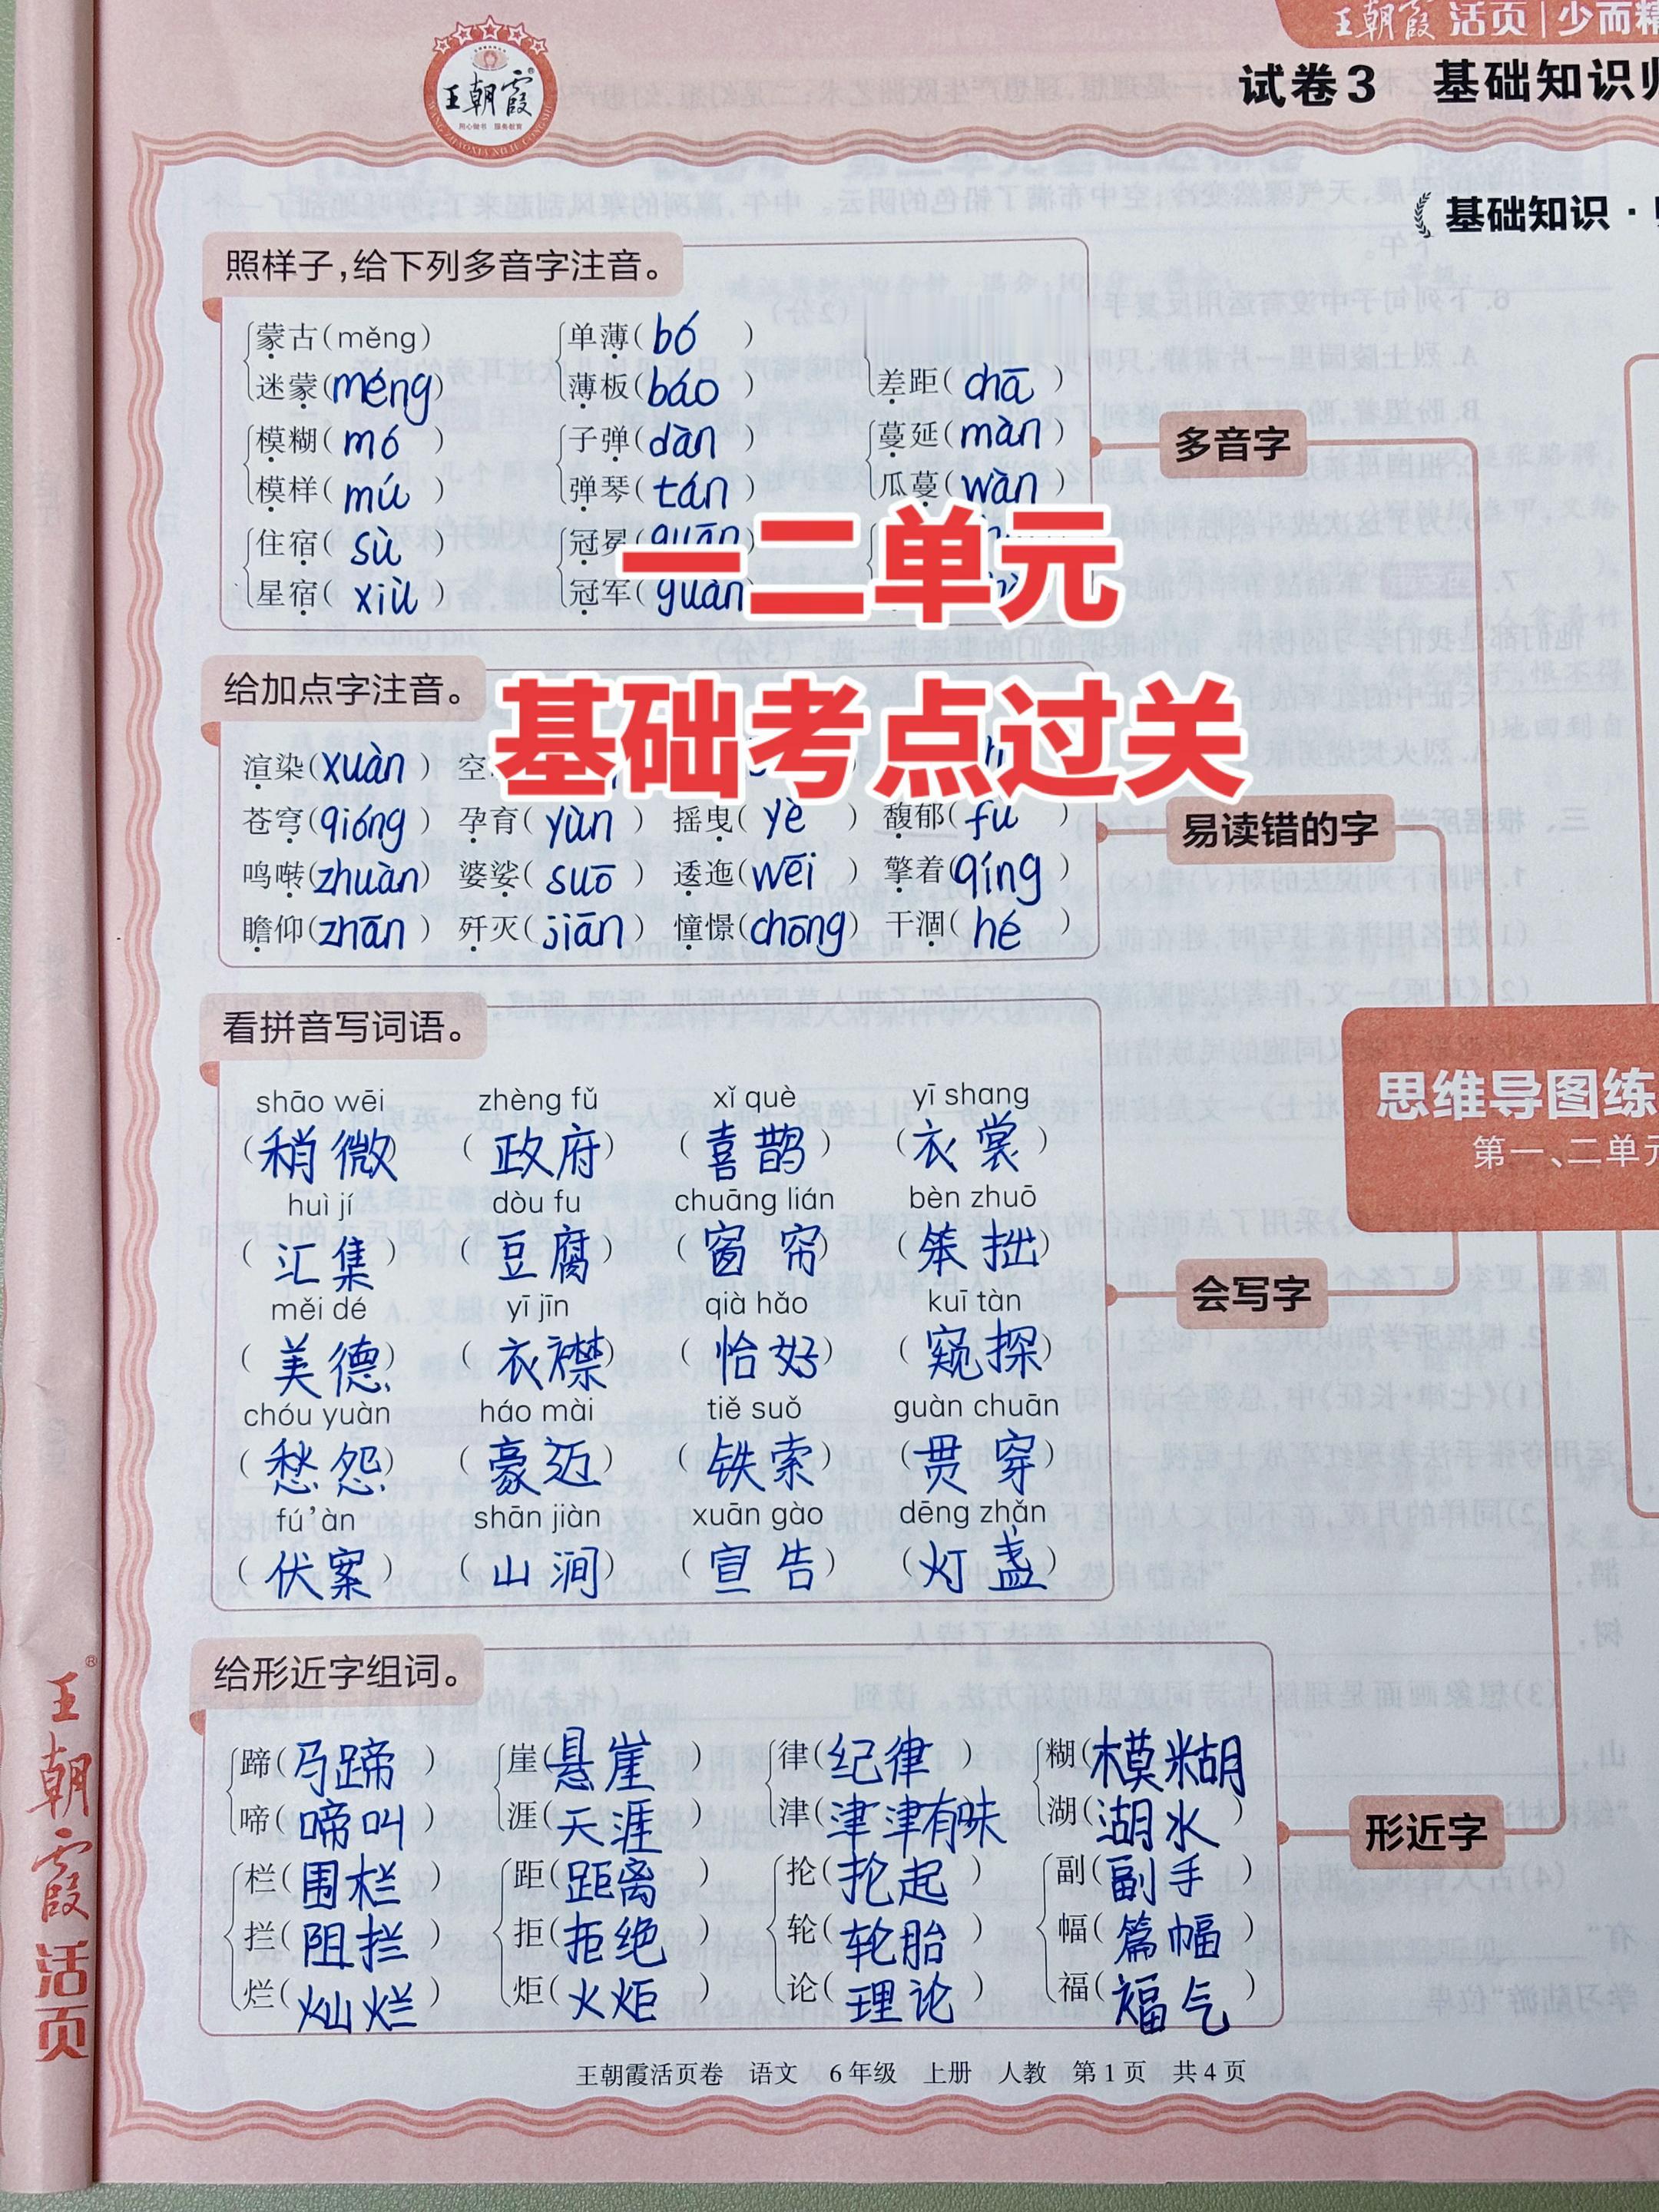 王朝霞 活页 | 少而精
王朝霞
试卷3 基础知识
基础知识·
照样子,给下列多音字注音。
蒙古(měng) 单薄(bó)
迷蒙(méng) 薄板(báo) 差距(chā)
模糊(mó) 子弹(dàn) 蔓延(màn)
模样(mú) 弹琴(tán) 瓜蔓(wàn)
住宿(sù) 冠冕(guān
星宿(xiù) 冠军(guàn
多音字
一二单元
基础考点过关
给加点字注音。
渲染(xuàn) 空
苍穹(qióng) 孕育(yùn) 摇曳(yè) 馥郁(fù)
鸣啭(zhuàn) 婆娑(suō) 逶迤(wēi) 擎着(qíng)
瞻仰(zhān) 歼灭(jiān) 憧憬(chōng) 干涸(hé)
易读错的字
看拼音写词语。
shāo wēi zhèng fǔ xǐ què yī shang
(稍微) (政府) (喜鹊) (衣裳)
huì jí dòu fu chuāng lián bèn zhuō
(汇集) (豆腐) (窗帘) (笨拙)
měi dé yī jīn qià hǎo kuī tàn
(美德) (衣襟) (恰好) (窥探)
chóu yuàn háo mài tiě suǒ guàn chuān
(愁怨) (豪迈) (铁索) (贯穿)
fú'àn shān jiàn xuān gào dēng zhǎn
(伏案) (山涧) (宣告) (灯盏)
会写字
思维导图练
第一、二单元
给形近字组词。
蹄(马蹄) 崖(悬崖) 律(纪律) 糊(模糊)
啼(啼叫) 涯(天涯) 津(津津有味) 湖(湖水)
栏(围栏) 距(距离) 抡(抡起) 副(副手)
拦(阻拦) 拒(拒绝) 轮(轮胎) 幅(篇幅)
烂(灿烂) 炬(火炬) 论(理论) 福(福气)
形近字
王朝霞®活页
王朝霞活页卷 语文 6年级 上册 人教 第1页 共4页